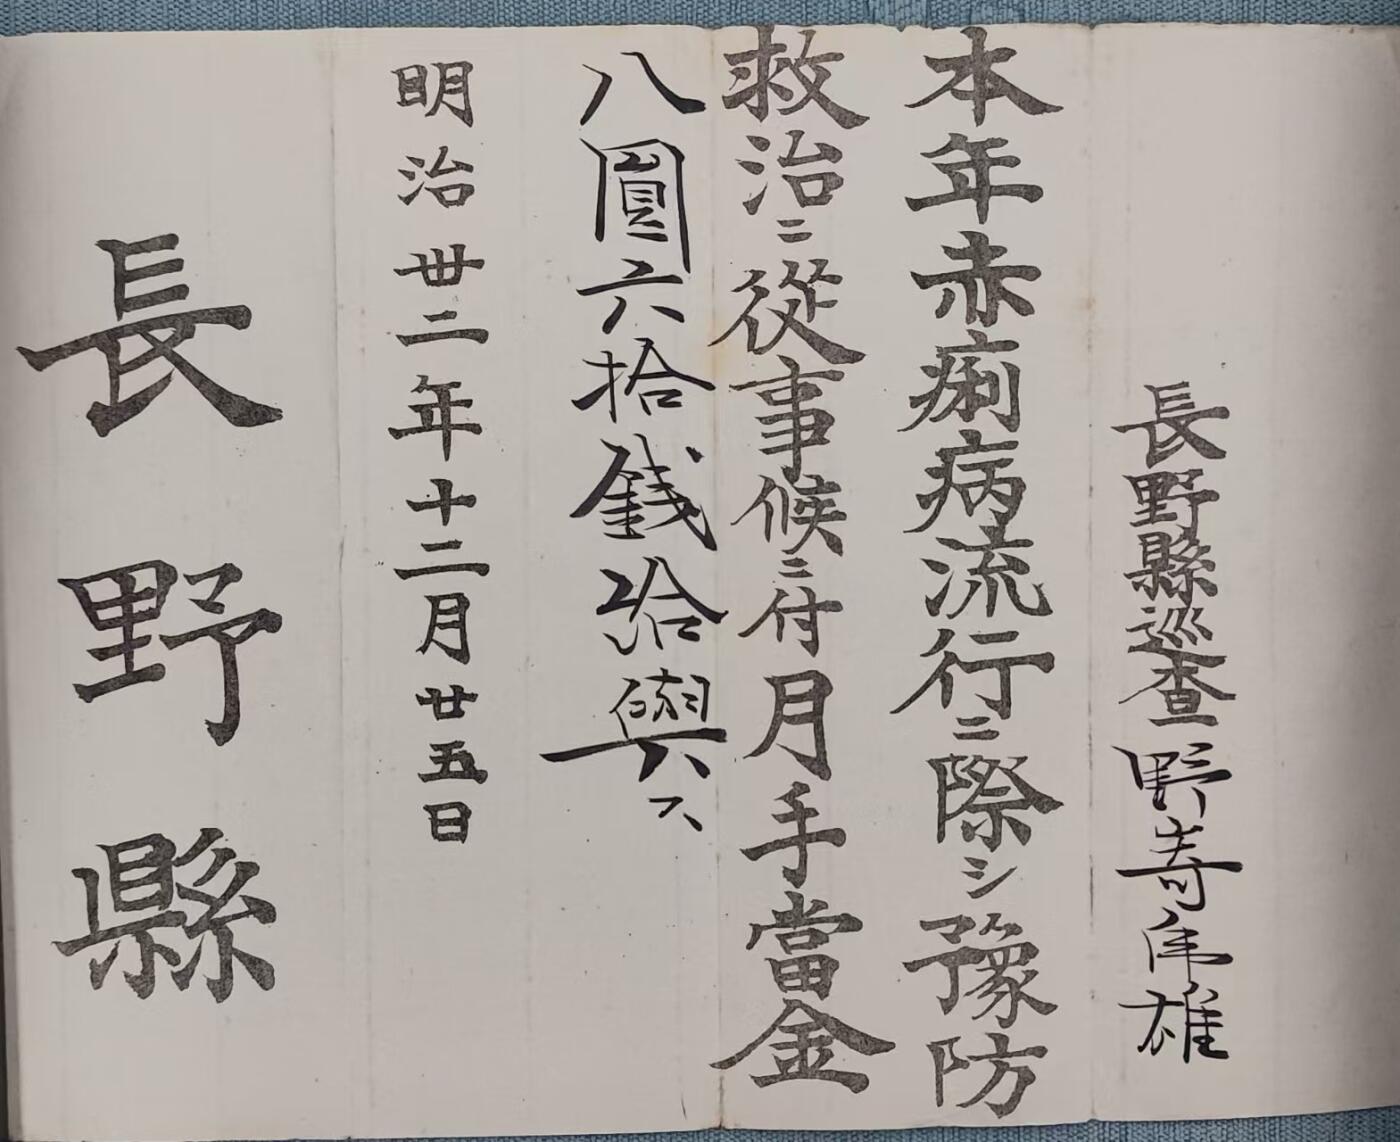 長野縣巡査 野嵜年雄
本年赤痢病流行ニ際シ豫防
救治ニ從事候ニ付月手當金
八圓六拾銭給與ス
明治丗二年十二月廿五日
長野縣